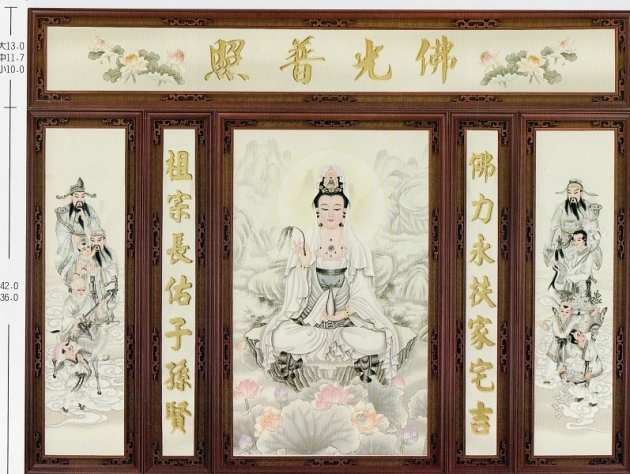 佛光普照
佛力永扶家宅吉
祖宗長佑子孫賢
大13.0
中11.7
小10.0
42.0
36.0